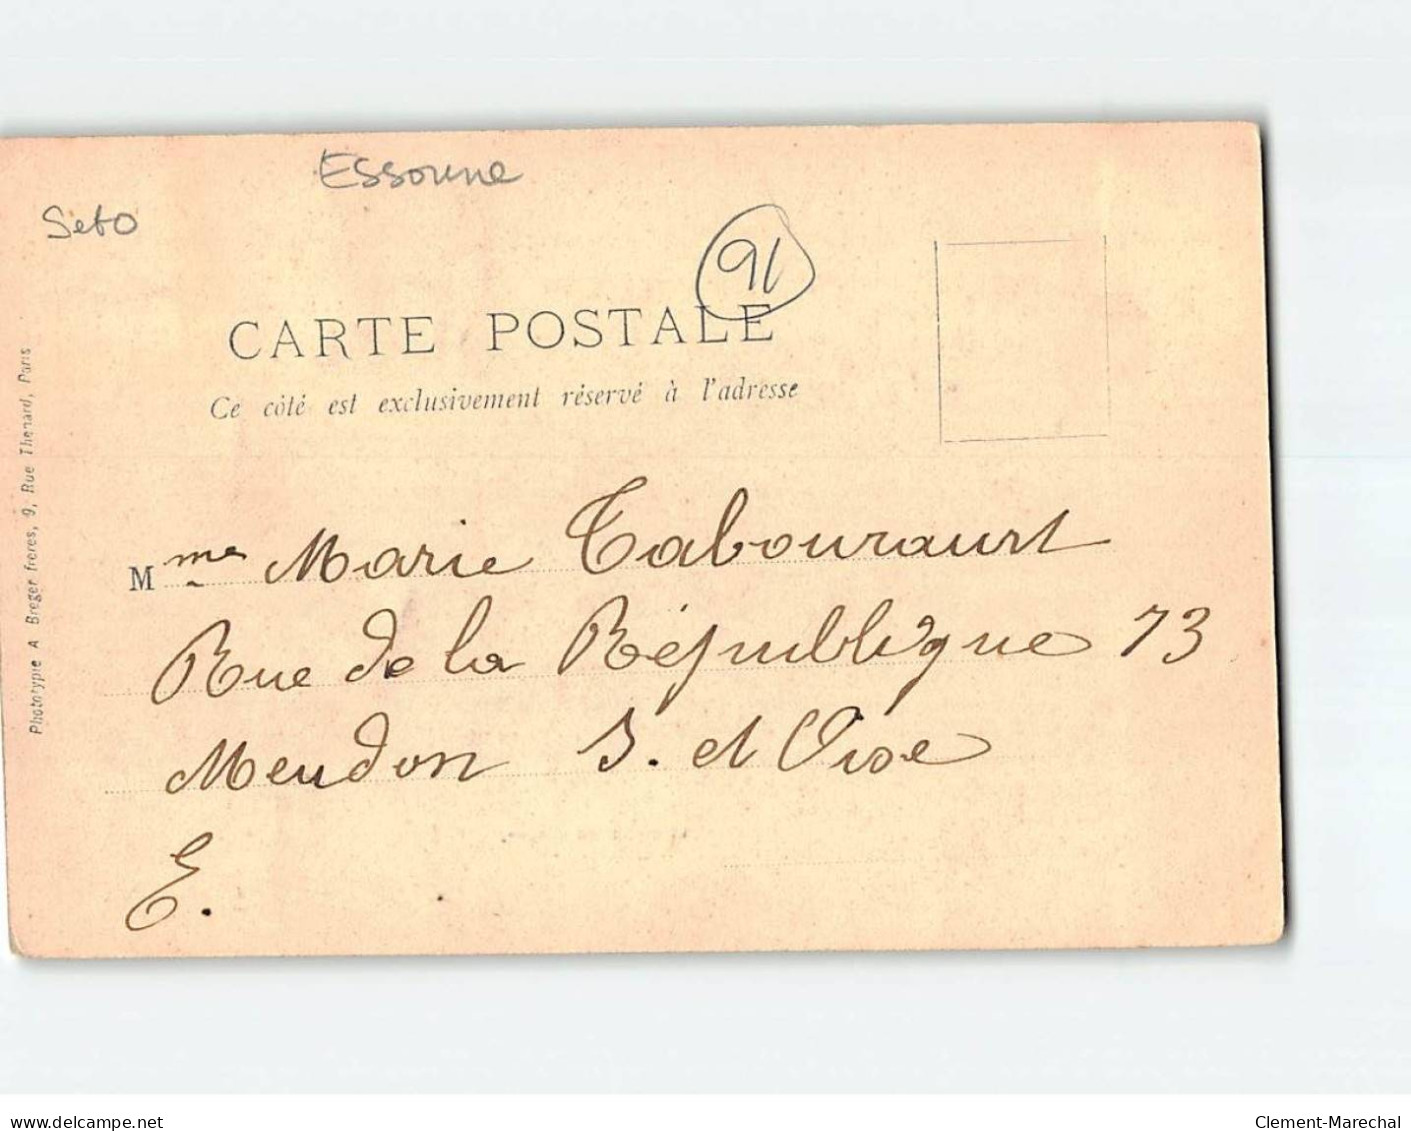 Essonne
Seto
91
CARTE POSTALE
Ce côté est exclusivement réservé à l'adresse
Phototypie A Breger frères, 9, Rue Thenard, Paris
Mme Marie Tabouraurt
Rue de la République 73
Meudon S. et Oise
E.
delcampe.net
Clement-Marechal